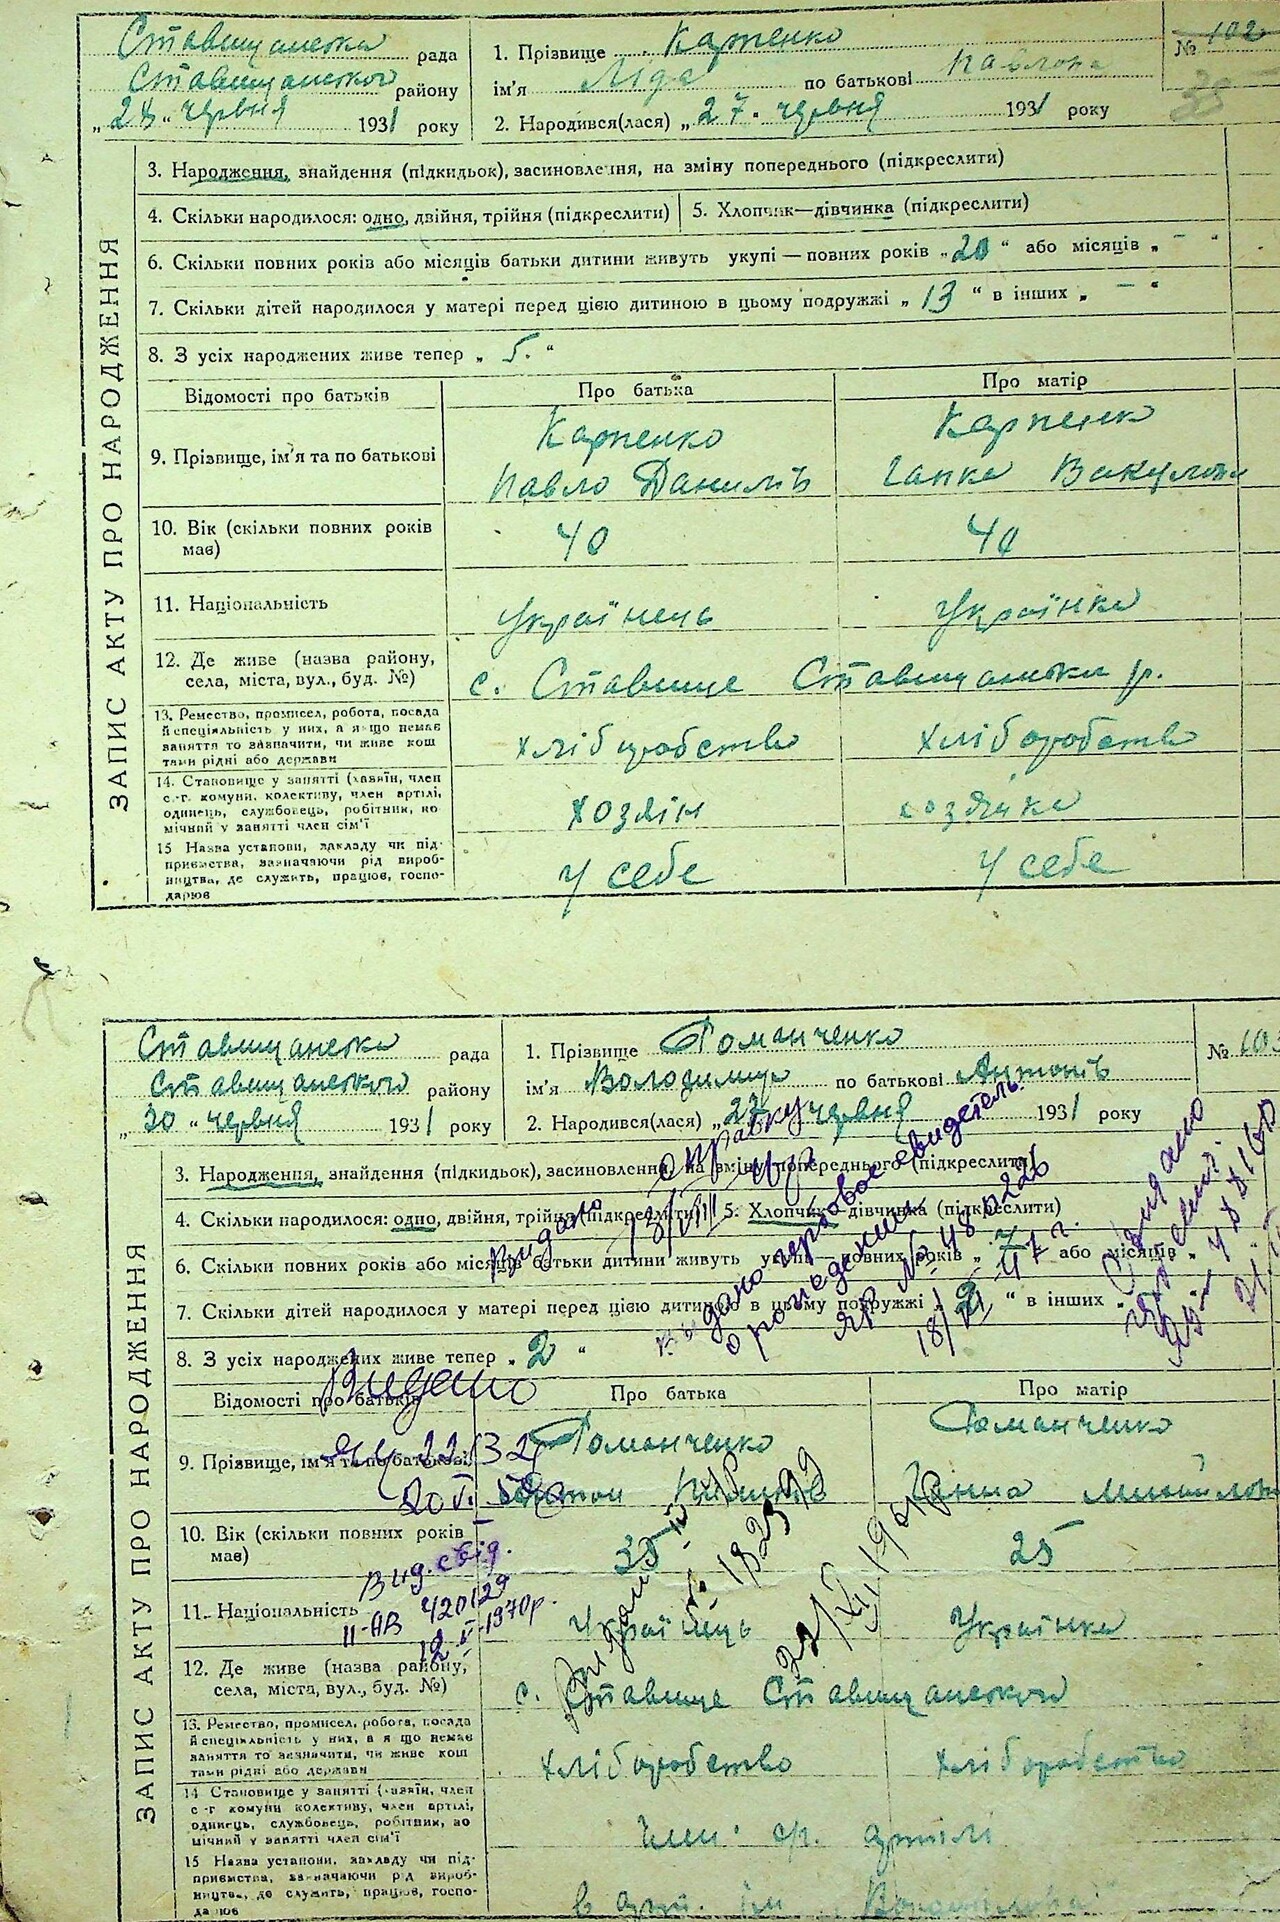 Ставищанська рада
Ставищанського району
„28“ червня 1931 року
1. Прізвище Карпенко
ім'я Ліда по батькові Павлова
2. Народився(лася) „27“ червня 1931 року
№ 102
39
ЗАПИС АКТУ ПРО НАРОДЖЕННЯ
3. Народження, знайдення (підкидьок), засиновлення, на зміну попереднього (підкреслити)
4. Скільки народилося: одно, двійня, трійня (підкреслити)
5. Хлопчик—дівчинка (підкреслити)
6. Скільки повних років або місяців батьки дитини живуть укупі — повних років „20“ або місяців „–“
7. Скільки дітей народилося у матері перед цією дитиною в цьому подружжі „13“ в інших „–“
8. З усіх народжених живе тепер „5.“
Відомості про батьків
Про батька
Про матір
9. Прізвище, ім'я та по батькові
Карпенко
Павло Данилів
Карпенк
Гапка Вакулова
10. Вік (скільки повних років має)
40
40
11. Національність
Українець
Українка
12. Де живе (назва району, села, міста, вул., буд. №)
с. Ставище Ставищанськи р.
13. Ремество, промисел, робота, посада
й спеціяльність у них, а якщо немає
заняття то зазначити, чи живе кош
тами рідні або держави
хліборобство
хліборобство
14. Становище у занятті (хазяїн, член
с.-г. комуни, колективу, член артілі,
одинець, службовець, робітник, по
мічний у занятті член сім'ї
хозяін
хозяіка
15 Назва установи, закладу чи під-
приємства, зазначаючи рід вироб-
ництва, де служить, працює, госпо-
дарює
у себе
у себе
Ставищанська рада
Ставищанського району
„30“ червня 1931 року
1. Прізвище Романченко
ім'я Володимир по батькові Антонів
2. Народився(лася) „27“ червня 1931 року
№ 103
ЗАПИС АКТУ ПРО НАРОДЖЕННЯ
3. Народження, знайдення (підкидьок), засиновлення, на зміну попереднього (підкреслити)
4. Скільки народилося: одно, двійня, трійня (підкреслити)
5. Хлопчик—дівчинка (підкреслити)
6. Скільки повних років або місяців батьки дитини живуть укупі — повних років „7“ або місяців „
7. Скільки дітей народилося у матері перед цією дитиною в цьому подружжі „2“ в інших „
8. З усіх народжених живе тепер „2“
Видано
справку
Выдано первое свидетель.
о рождении
ЯР № 480226
18/VI 47 г.
Видано
20.V.
Вид. свід.
II-АВ 420129
12.V-1970р.
Видано
182399
22/XI 1961р
Відомості про батьків
Про батька
Про матір
9. Прізвище, ім'я та по батькові
Романченко
Антон
Романченко
Ганна Михайлова
10. Вік (скільки повних років має)
35
25
11. Національність
Українець
Українка
12. Де живе (назва району, села, міста, вул., буд. №)
с. Ставище Ставищанського
13. Ремество, промисел, робота, посада
й спеціяльність у них, а якщо немає
заняття то зазначити, чи живе кош
тами рідні або держави
хліборобство
хліборобство
14 Становище у занятті (хазяїн, член
с.-г. комуни колективу, член артілі,
одинець, службовець, робітник, по
мічний у занятті член сім'ї
член ср. артілі
15 Назва установи, закладу чи під-
приємства, зазначаючи рід вироб-
ництва, де служить, працює, госпо-
дарює
в арт. ім. Ворошилова